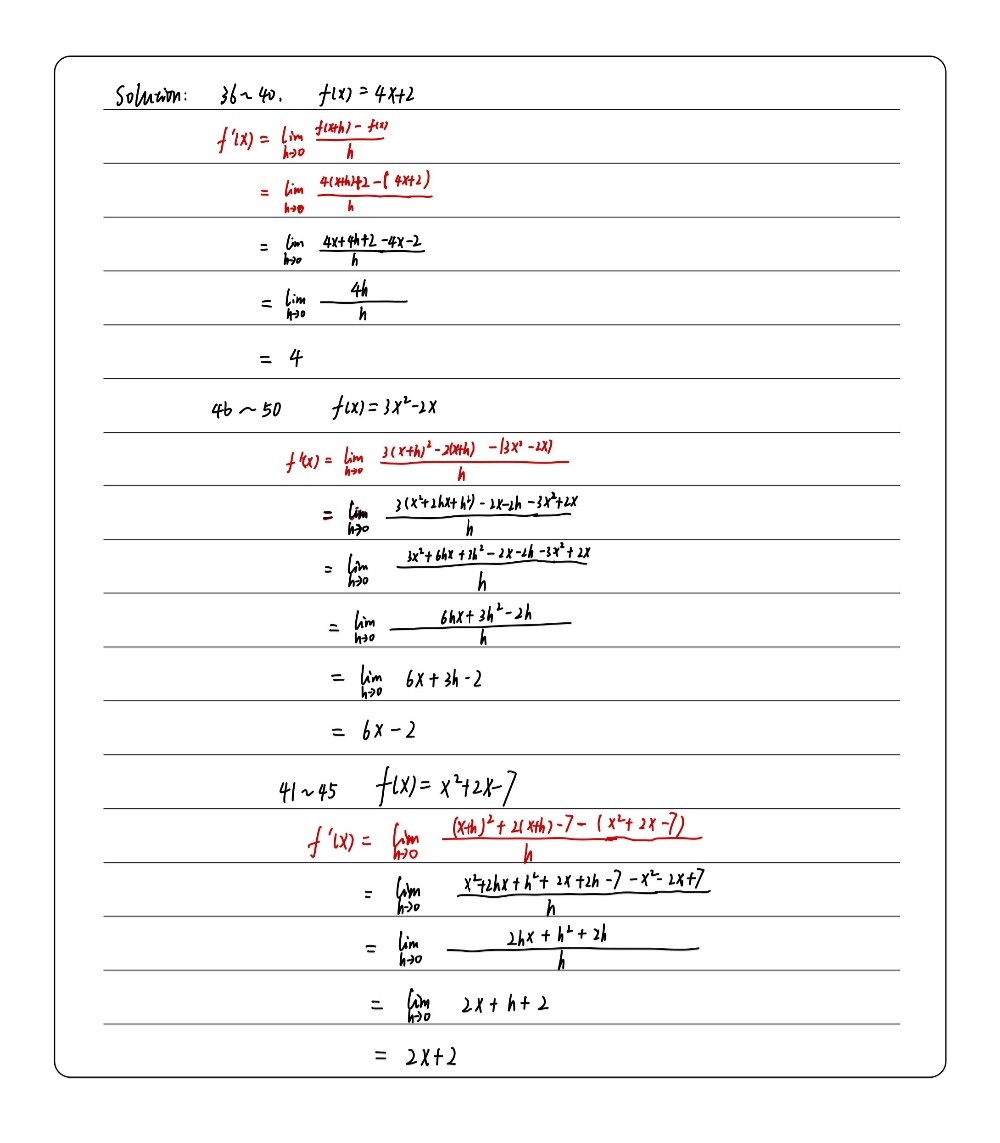 Solution: 36~40. f(x) = 4x+2
f'(x) = lim h→0 (f(x+h) - f(x))/h
= lim h→0 (4(x+h)+2-(4x+2))/h
= lim h→0 (4x+4h+2-4x-2)/h
= lim h→0 4h/h
= 4
46~50 f(x) = 3x²-2x
f'(x) = lim h→0 (3(x+h)²-2(x+h) -(3x²-2x))/h
= lim h→0 (3(x²+2hx+h²)-2x-2h-3x²+2x)/h
= lim h→0 (3x²+6hx+3h²-2x-2h-3x²+2x)/h
= lim h→0 (6hx+3h²-2h)/h
= lim h→0 6x+3h-2
= 6x-2
41~45 f(x) = x²+2x-7
f'(x) = lim h→0 ((x+h)²+2(x+h)-7-(x²+2x-7))/h
= lim h→0 (x²+2hx+h²+2x+2h-7-x²-2x+7)/h
= lim h→0 (2hx+h²+2h)/h
= lim h→0 2x+h+2
= 2x+2